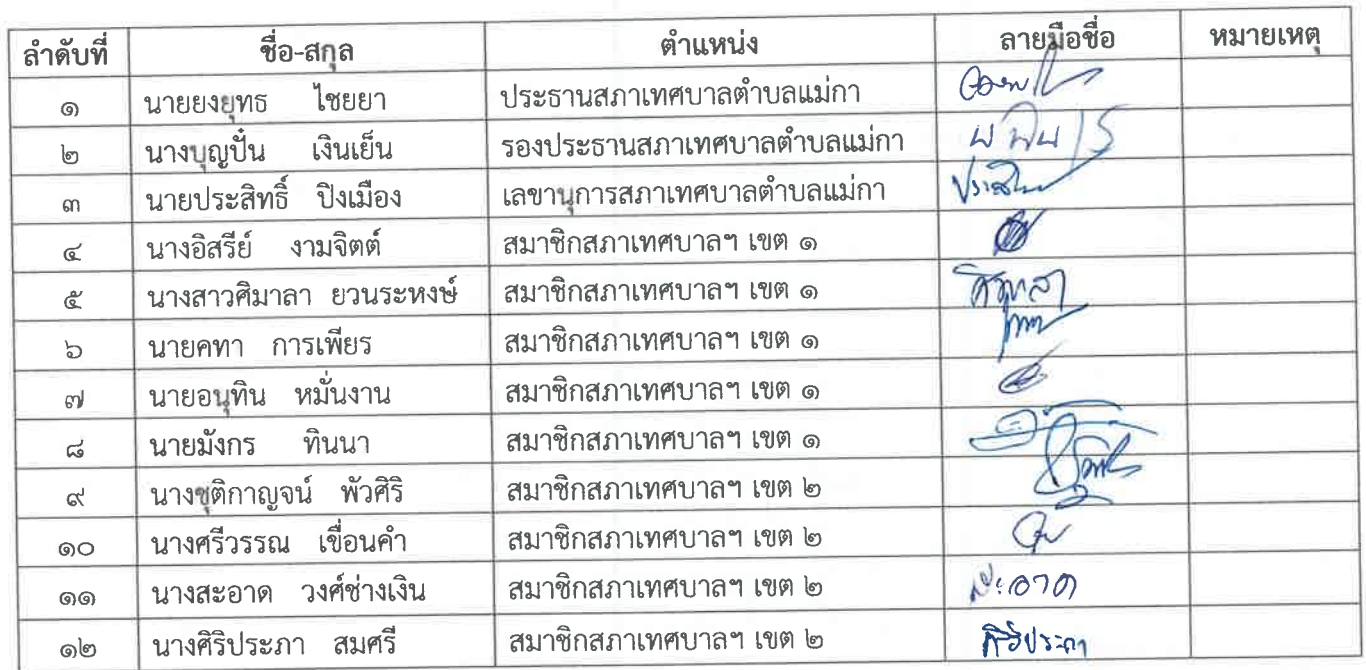 ลำดับที่ ชื่อ-สกุล ตำแหน่ง ลายมือชื่อ หมายเหตุ
๑ นายยงยุทธ ไชยยา ประธานสภาเทศบาลตำบลแม่กา
๒ นางบุญปั๋น เงินเย็น รองประธานสภาเทศบาลตำบลแม่กา
๓ นายประสิทธิ์ ปิงเมือง เลขานุการสภาเทศบาลตำบลแม่กา
๔ นางอิสรีย์ งามจิตต์ สมาชิกสภาเทศบาลฯ เขต ๑
๕ นางสาวศิมาลา ยวนระหงษ์ สมาชิกสภาเทศบาลฯ เขต ๑
๖ นายคทา การเพียร สมาชิกสภาเทศบาลฯ เขต ๑
๗ นายอนุทิน หมั่นงาน สมาชิกสภาเทศบาลฯ เขต ๑
๘ นายมังกร ทินนา สมาชิกสภาเทศบาลฯ เขต ๑
๙ นางชุติกาญจน์ พัวศิริ สมาชิกสภาเทศบาลฯ เขต ๒
๑๐ นางศรีวรรณ เขื่อนคำ สมาชิกสภาเทศบาลฯ เขต ๒
๑๑ นางสะอาด วงศ์ช่างเงิน สมาชิกสภาเทศบาลฯ เขต ๒ สะอาด
๑๒ นางศิริประภา สมศรี สมาชิกสภาเทศบาลฯ เขต ๒ ศิริประภา